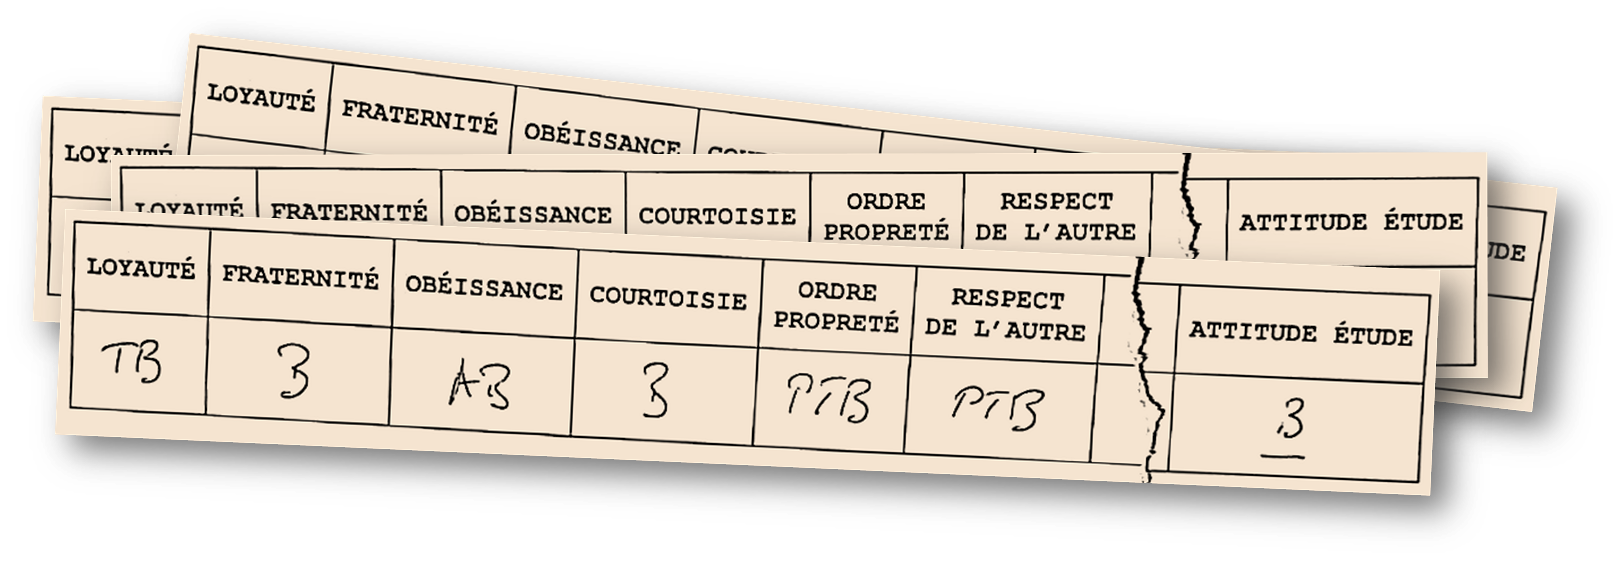 LOYAUTÉ FRATERNITÉ OBÉISSANCE
LOYAUTÉ
LOYAUTÉ FRATERNITÉ OBÉISSANCE COURTOISIE ORDRE PROPRETÉ RESPECT DE L'AUTRE ATTITUDE ÉTUDE
UDE
LOYAUTÉ FRATERNITÉ OBÉISSANCE COURTOISIE ORDRE PROPRETÉ RESPECT DE L'AUTRE ATTITUDE ÉTUDE
TB B AB B PTB PTB B